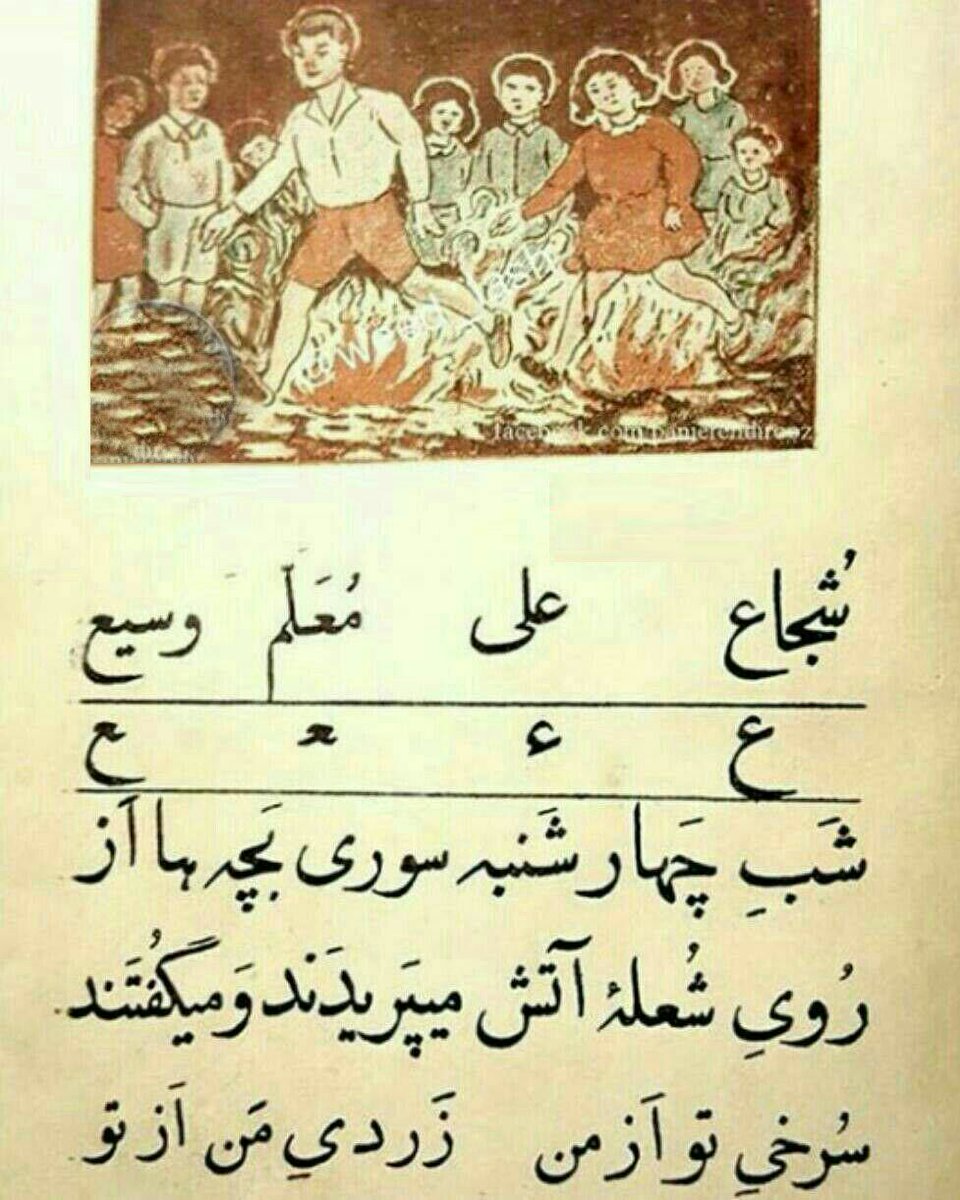 facebook.com/
شُجاع علی مُعَلّم وسیع
ع ﻋ ﻌ ﻊ
شَبِ چَهار شَنبه سوری بَچه ها اَز
رُویِ شُعلهٔ آتَش میپَریدَند وَ میگُفتَند
سُرخیِ تو اَز من زَردیِ مَن اَز تو